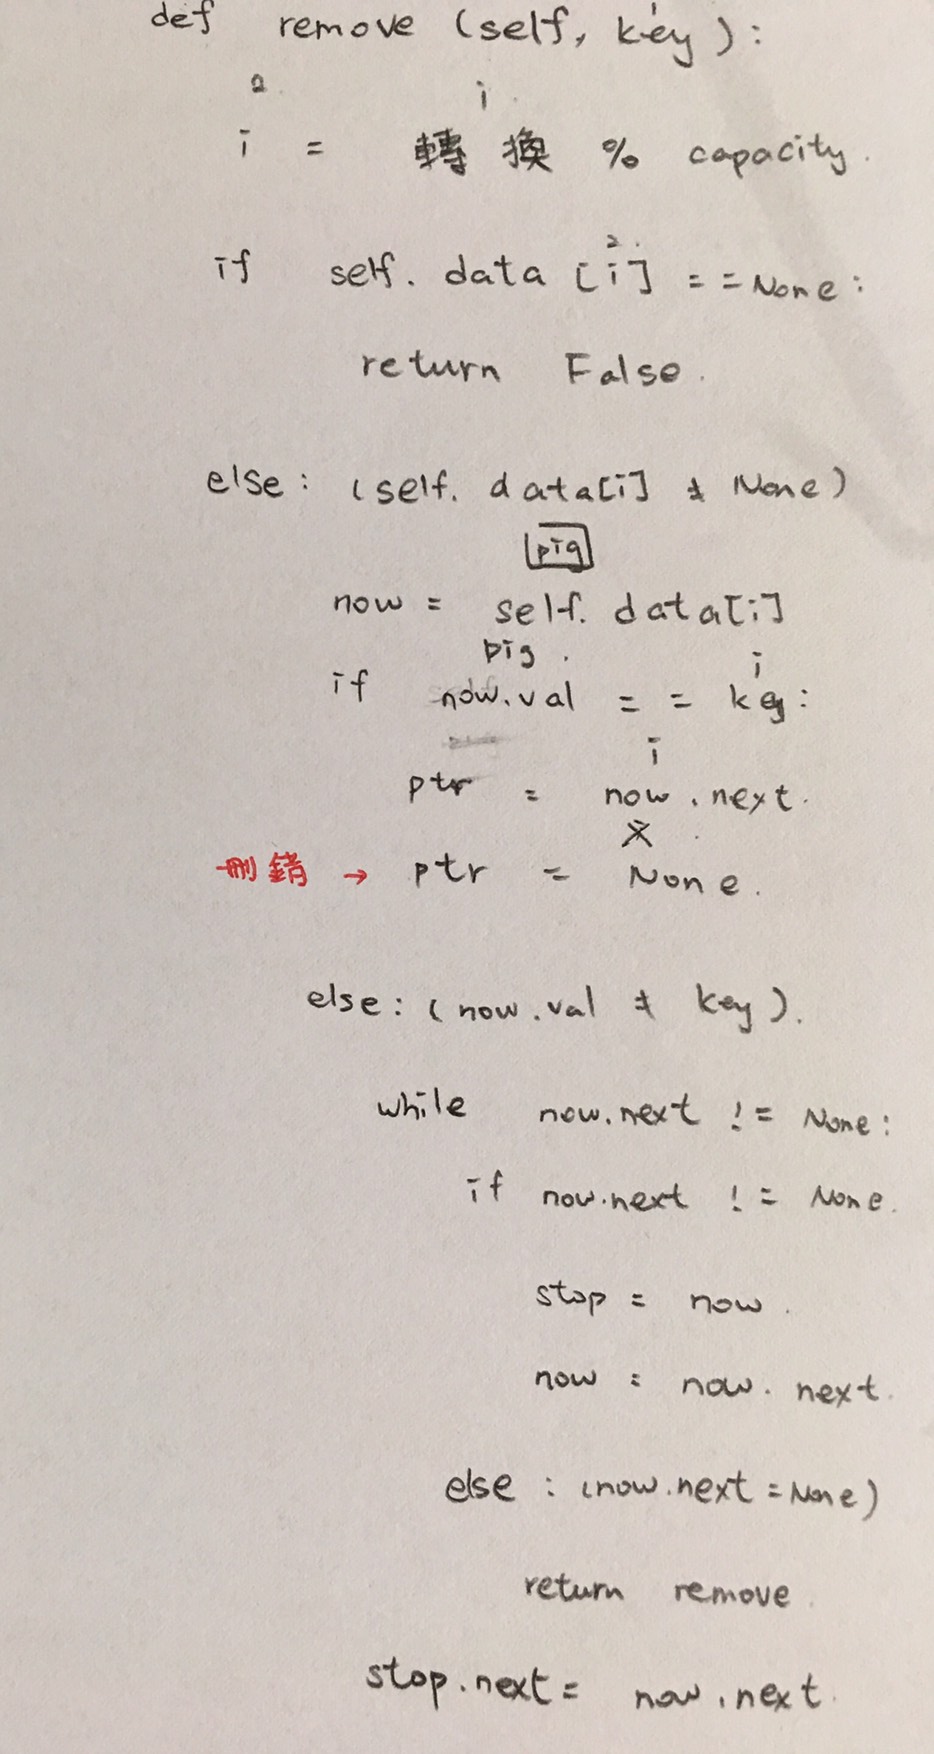 def remove (self, key):
2 i
i = 轉換 % capacity.
2.
if self. data [i] == None:
return False.
else: (self. data[i] ≠ None)
pig
now = self. data[i]
pig. i
if now.val == key:
i
ptr = now.next.
x
刪錯 → ptr = None.
else: (now.val ≠ key).
while now.next != None:
if now.next != None.
stop = now.
now = now.next.
else: (now.next = None)
return remove.
stop.next = now.next.